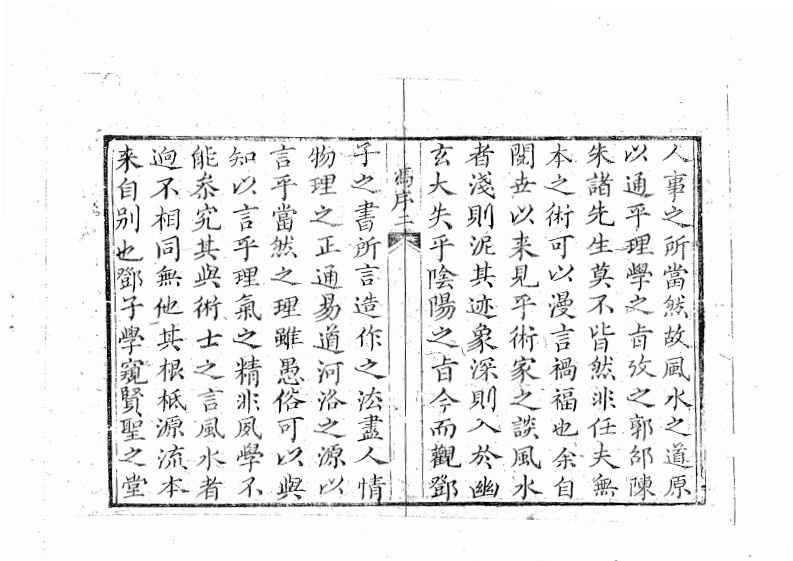 人事之所當然故風水之道原
以通乎理學之㫖攷之郭邵陳
朱諸先生莫不皆然非任夫無
本之術可以漫言禍福也余自
閱世以来見乎術家之談風水
者淺則泥其迹象深則入於幽
玄大失乎陰陽之㫖今而觀鄧
馮序二
子之書所言造作之法盡人情
物理之正通易道河洛之源以
言乎當然之理雖愚俗可以與
知以言乎理氣之精非夙學不
能叅究其與術士之言風水者
逈不相同無他其根柢源流本
来自别也鄧子學窺賢聖之堂